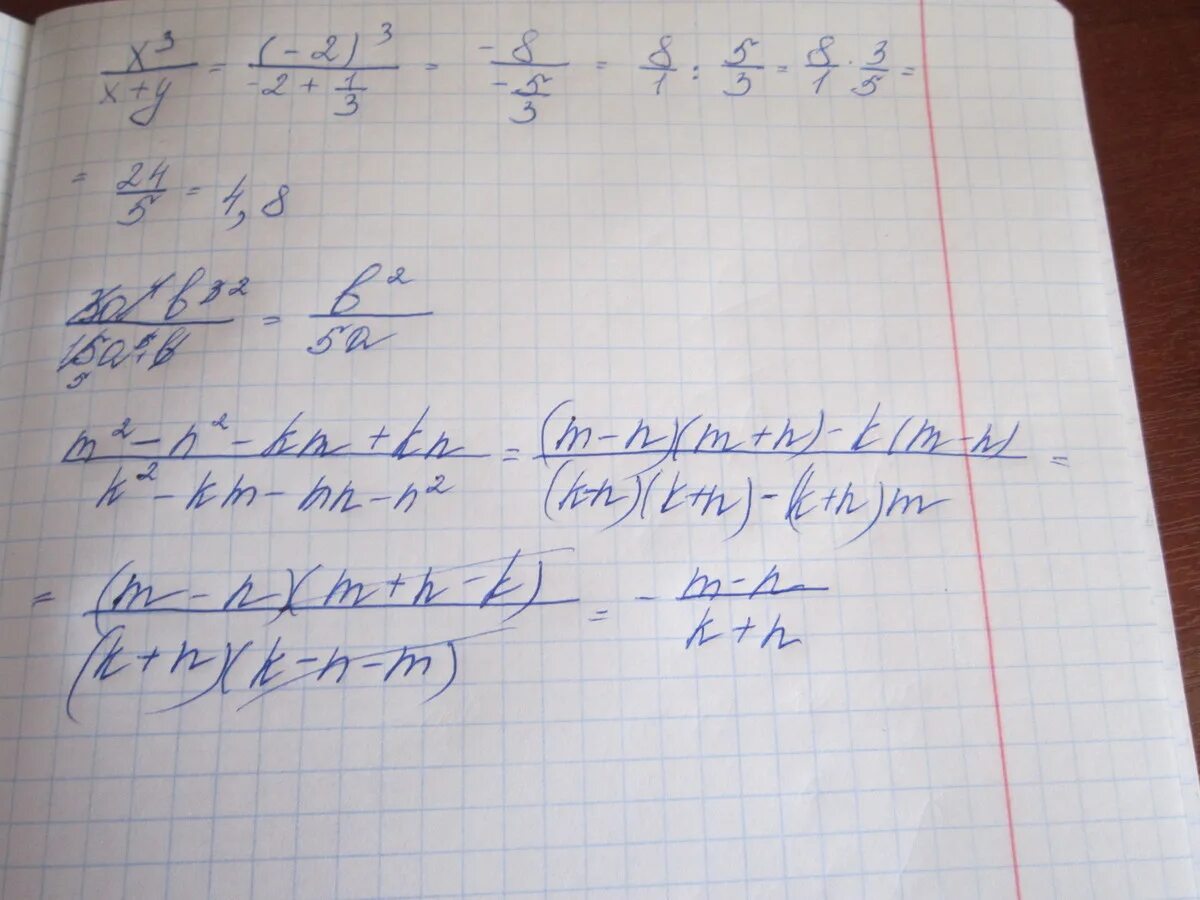 x³/(x+y) = (-2)³/(-2+1/3) = -8/(-5/3) = 8/1 : 5/3 = 8/1 · 3/5 =
= 24/5 = 4,8
3a⁴b³/15a⁵b = b²/5a
(m²-n²-km+kn)/(k²-km-mn-n²) = ((m-n)(m+n)-k(m-n))/((k-n)(k+n)-(k+n)m) =
= ((m-n)(m+n-k))/((k+n)(k-n-m)) = -(m-n)/(k+n)